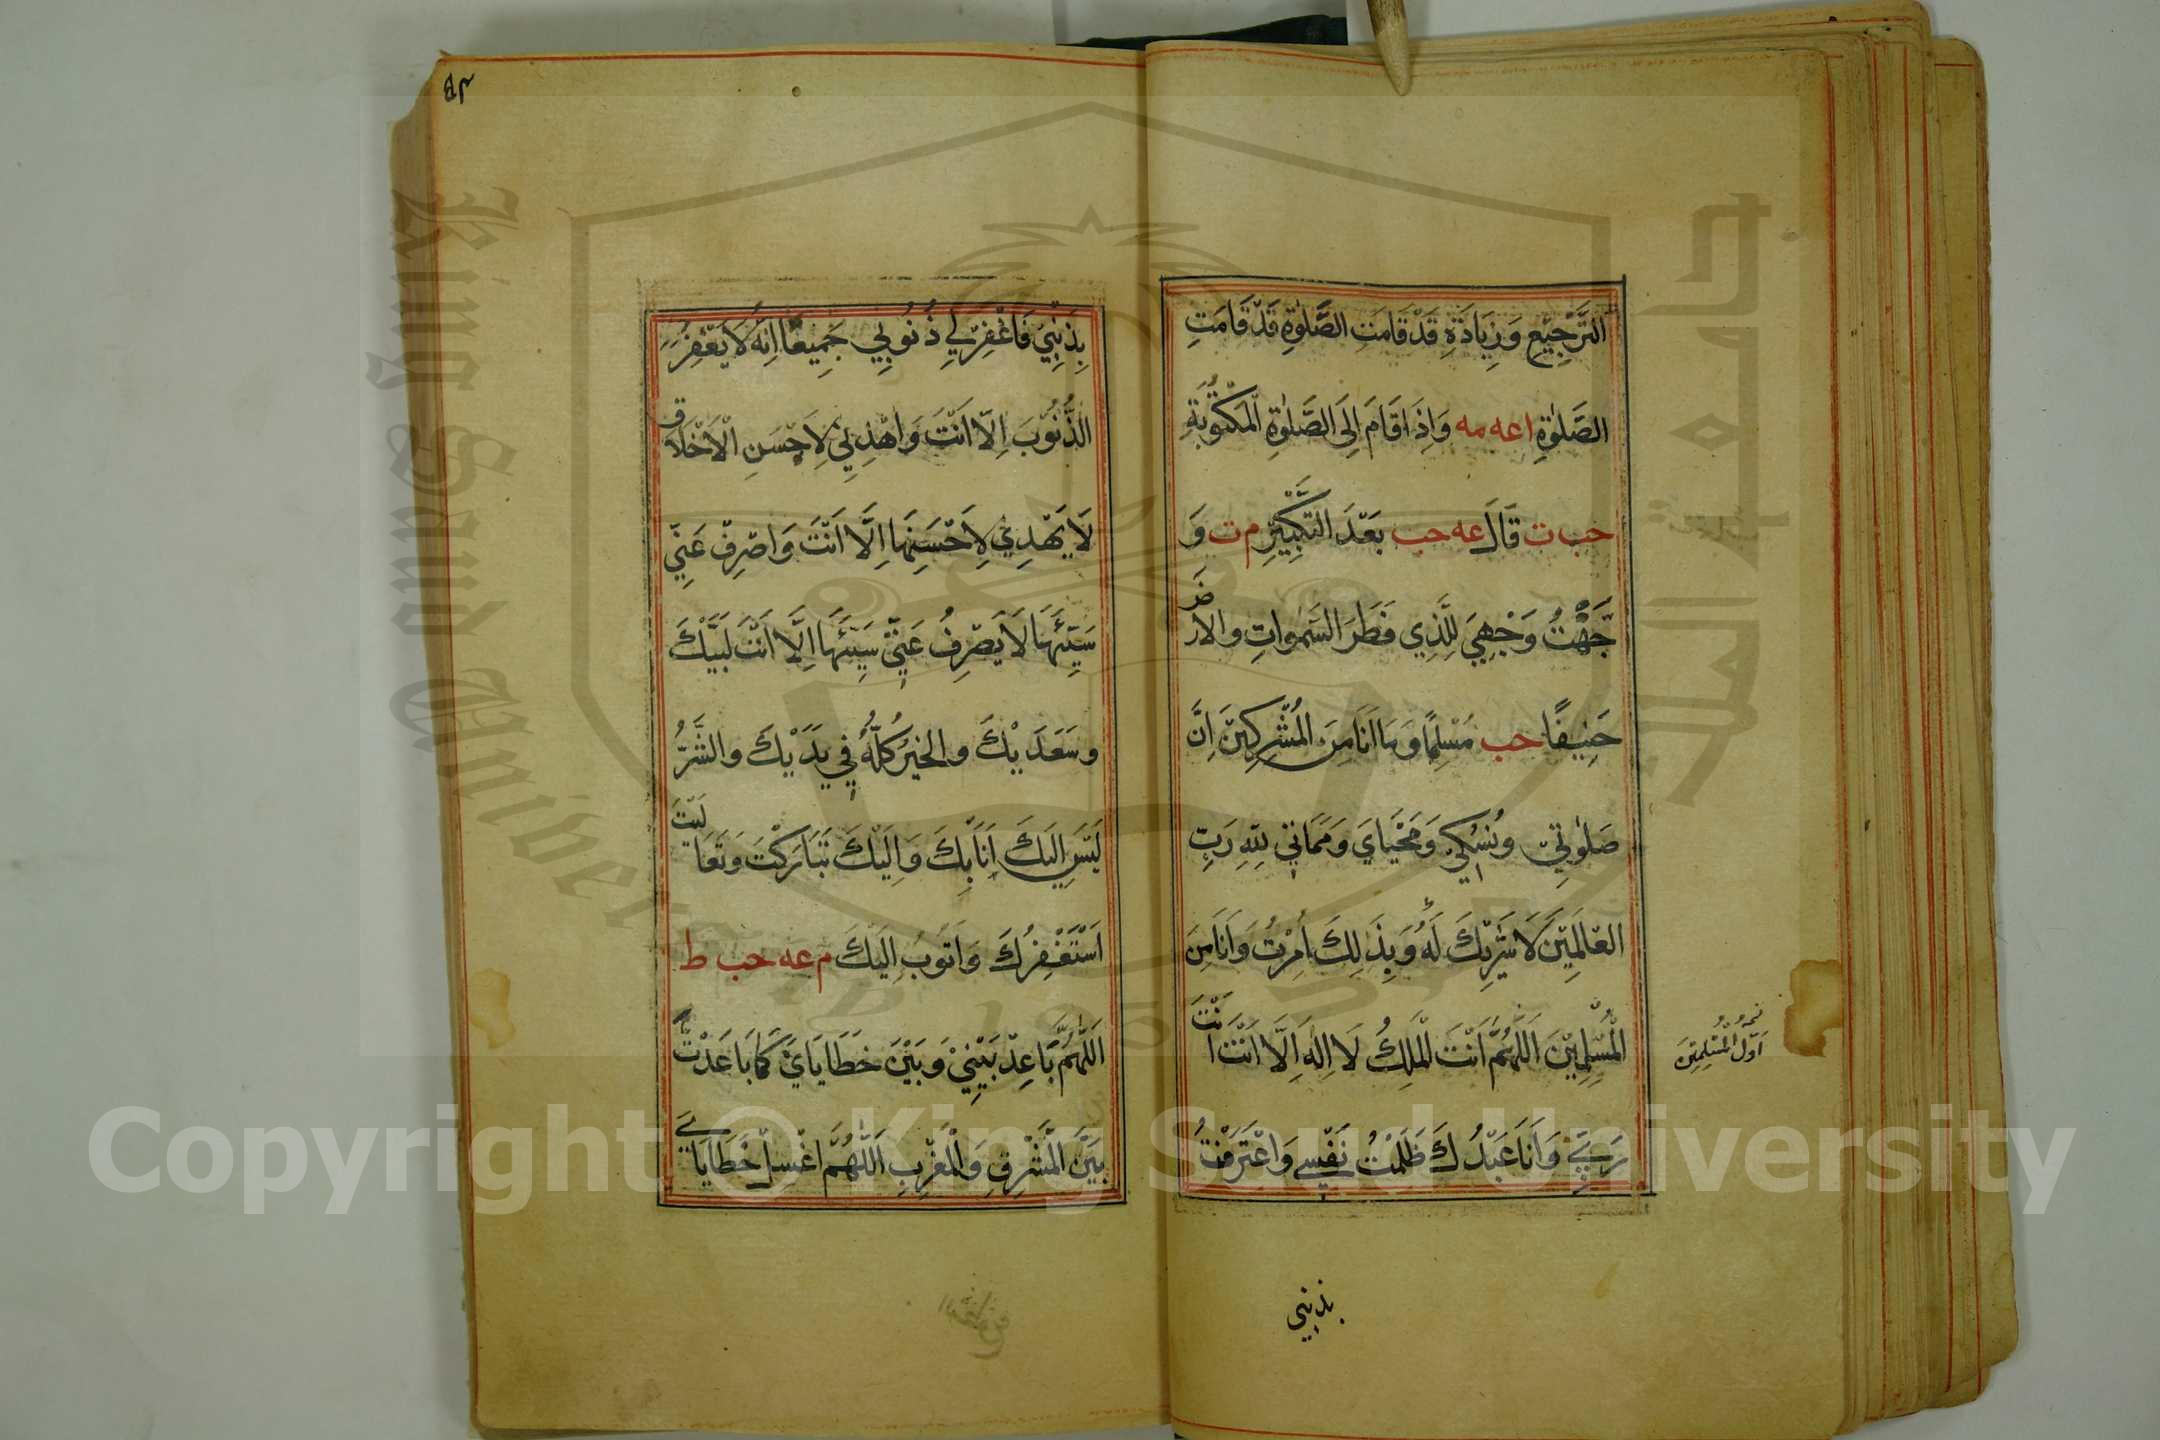 التَّرْجِيْعِ وَزِيَادَةِ قَدْ قَامَتِ الصَّلٰوةِ قَدْ قَامَتِ
الصَّلٰوةِ اعه مه وَاِذَا قَامَ اِلَى الصَّلٰوةِ الْمَكْتُوْبَةِ
حب ت قَالَ عه حب بَعْدَ التَّكْبِيْرِ م ت وَ
جَّهْتُ وَجْهِيَ لِلَّذِي فَطَرَ السَّمٰواتِ والارض
حَنِيفًا حب مُسْلِمًا وَمَا اَنَا مِنَ الْمُشْرِكِيْنَ اِنَّ
صَلٰوتِيْ وَنُسُكِيْ وَمَحْيَايَ وَمَمَاتِيْ لِلّٰهِ رَبِّ
العَالَمِيْنَ لَا شَرِيْكَ لَهُ وَبِذٰلِكَ اُمِرْتُ وَاَنَا مِنَ
الْمُسْلِمِيْنَ اَللّٰهُمَّ اَنْتَ الْمَلِكُ لَا اِلٰهَ اِلَّا اَنْتَ اَنْتَ
اَوَّلُ الْمُسْلِمِيْنَ
رَبِّيْ وَاَنَا عَبْدُكَ ظَلَمْتُ نَفْسِيْ وَاعْتَرَفْتُ
بذنبي
بِذَنْبِيْ فَاغْفِرْ لِي ذُنُوبِي جَمِيعًا اِنَّهُ لَا يَغْفِرُ
الذُّنُوْبَ اِلَّا اَنْتَ وَاهْدِنِيْ لِاَحْسَنِ الْاَخْلَاق
لَا يَهْدِيْ لِاَحْسَنِهَا اِلَّا اَنْتَ وَاصْرِفْ عَنِّيْ
سَيِّئَهَا لَا يَصْرِفُ عَنِّيْ سَيِّئَهَا اِلَّا اَنْتَ لَبَّيْكَ
وسَعْدَيْكَ والخَيْرُ كُلُّهُ فِي يَدَيْكَ والشَّرُّ
لَيْسَ اِلَيْكَ اَنَا بِكَ وَاِلَيْكَ تَبَارَكْتَ وَتَعَالَيْتَ
اَسْتَغْفِرُكَ وَاَتُوبُ اِلَيْكَ م عه حب ط
اَللّٰهُمَّ بَاعِدْ بَيْنِيْ وَبَيْنَ خَطَايَايَ كَمَا بَاعَدْتَ
بَيْنَ الْمَشْرِقِ وَالْمَغْرِبِ اَللّٰهُمَّ اغْسِلْ خَطَايَايَ
King Saud University
Copyright © King Saud University